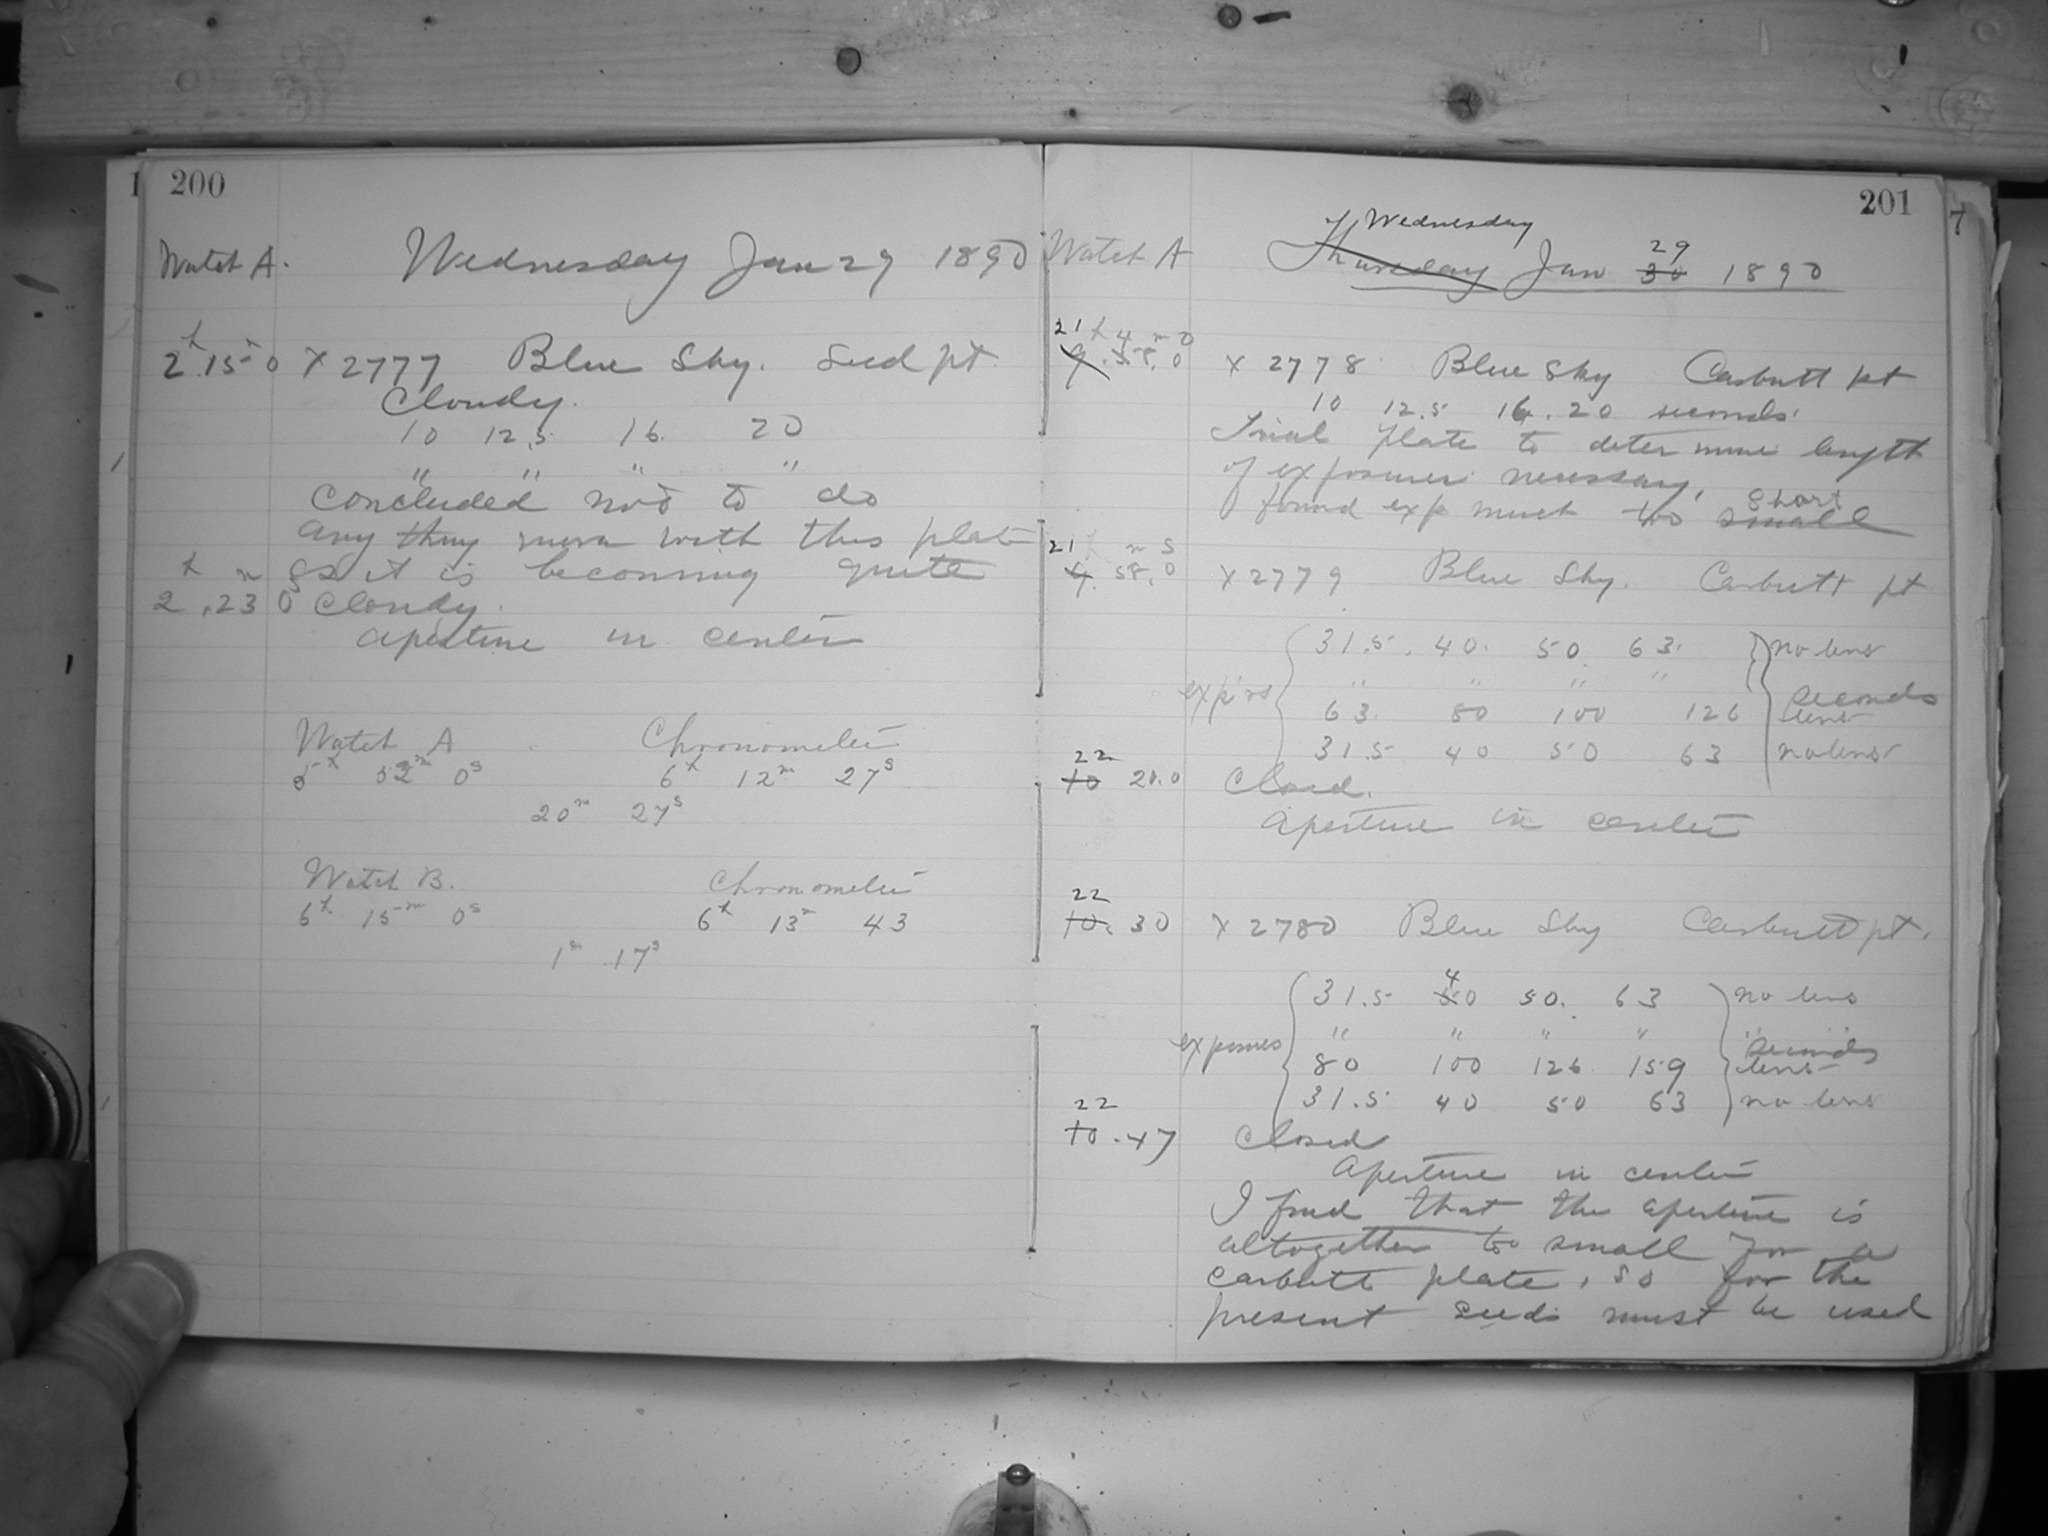 1 200
Watch A. Wednesday Jan 29 1890
2h 15m 0 X 2777 Blue Sky. Seed pt.
Cloudy.
10 12.5 16. 20
" " " "
Concluded not to do
any thing more with this plate
h m as it is becoming quite
2 .23 0 Cloudy.
aperture in center
Watch A Chronometer
5h 52m 0s 6h 12m 27s
20m 27s
Watch B. Chronometer
6h 15m 0s 6h 13m 43
1m 17s
201 7
Watch A Thursday Wednesday Jan 30 29 1890
21h 4m 0
9. 58.0 X 2778 Blue Sky Carbutt pt
10 12.5 16. 20 seconds.
Trial plate to determine length
of exposures necessary,
found exp much too small short
21 h m s
9. 58.0 X 2779 Blue Sky. Carbutt pt
31.5. 40. 50. 63. no lens
" " " " seconds
63. 80 100 126 lens
31.5 40 50 63 no lens
22
10 20.0 Closed.
aperture in center
22
10. 30 X 2780 Blue Sky Carbutt pt.
4
31.5 50 50. 63 no lens
exposures " " " " " seconds
80 100 126 159 lens
31.5 40 50 63 no lens
22
10.47 Closed
Aperture in center
I find that the aperture is
altogether to small for a
Carbutt plate, so for the
present seeds must be used